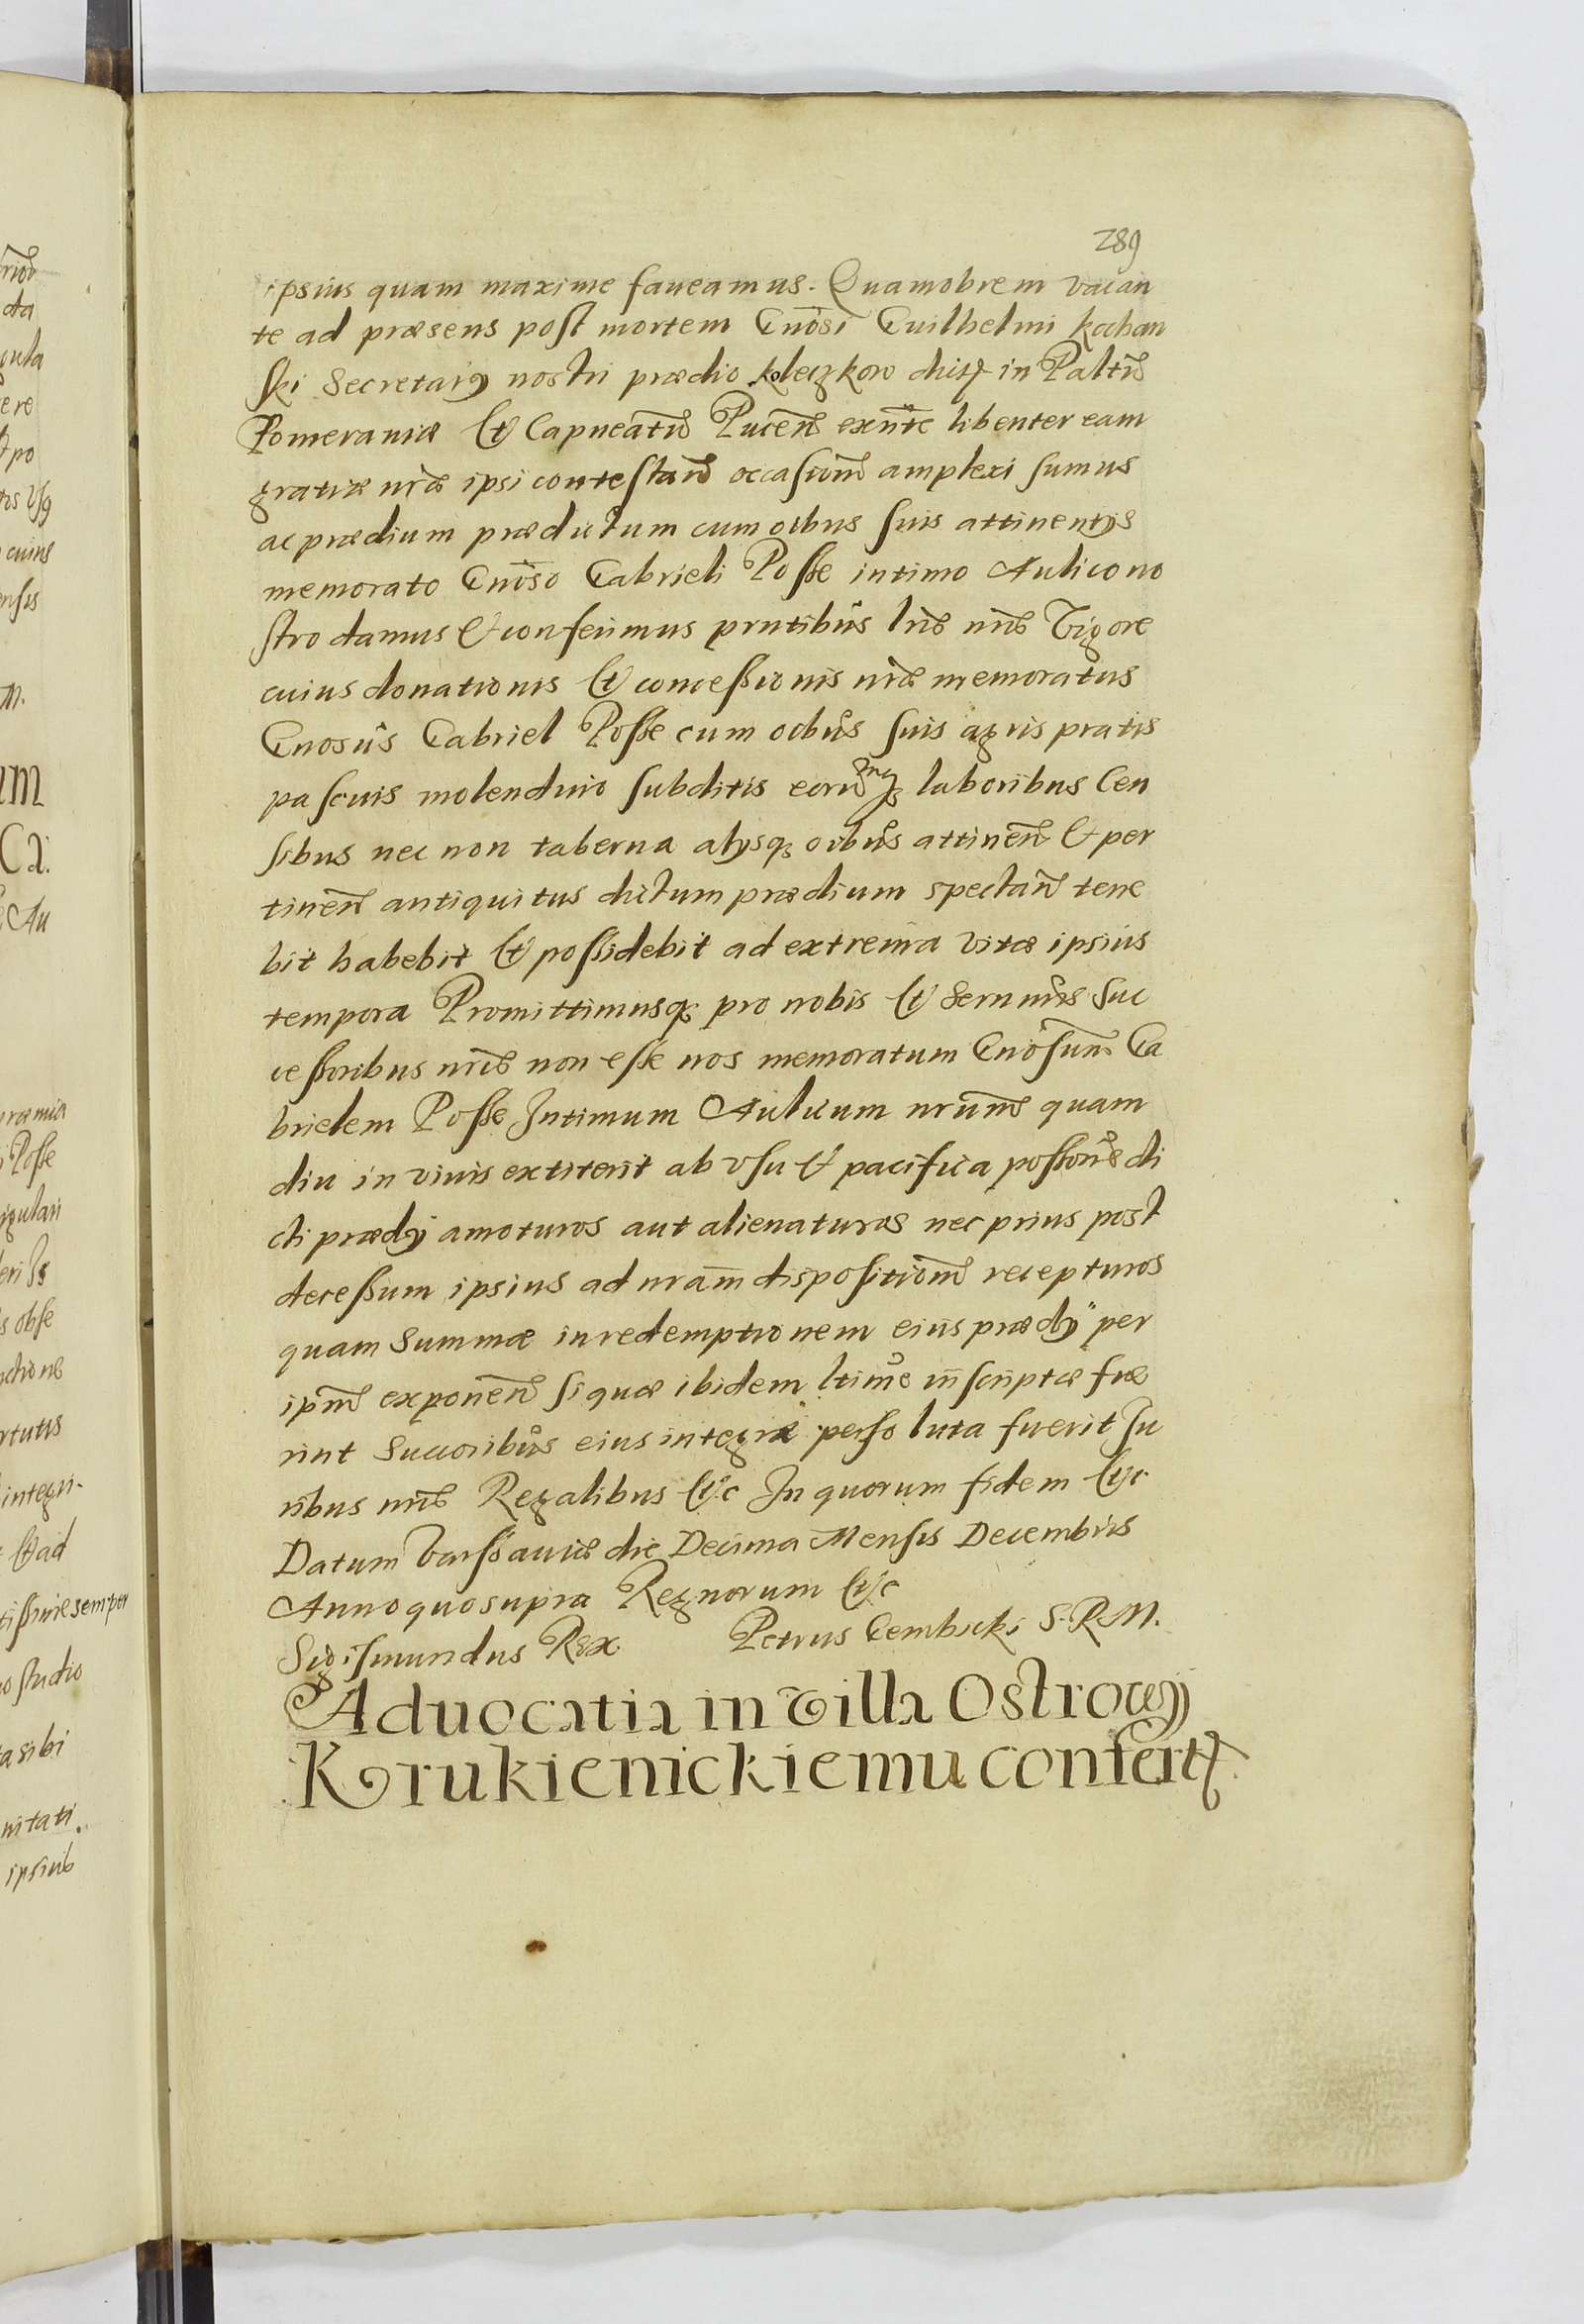 289
ipsius quam maxime faueamus. Quamobrem vacan
te ad præsens post mortem Gnosi Guilhelmi kochan
ski Secretarij nostri prædio kleczkow dicto in Paltu
Pomeraniæ et Capneatu Pucen exnte libenter eam
gratiæ nræ ipsi contestan occasionem amplexi sumus
ac prædium prædictum cum oibus suis attinentijs
memorato Gnoso Gabrieli Posse intimo Aulico no
stro damus et conferimus pntibus lris nris Vigore
cuius donationis et concessionis nræ memoratus
Gnosus Gabriel Posse cum oibus suis agris pratis
pascuis molendino subditis eorumq laboribus Cen
sibus nec non taberna alijsq oibus attinen et per
tinen antiquitus dictum prædium spectan tene
bit habebit et possidebit ad extrema vitæ ipsius
tempora Promittimusq pro nobis et Sernmis Suc
cessoribus nris non esse nos memoratum Gnosum Ga
brielem Posse Intimum Aulicum nrum quam
diu in viuis extiterit ab vsu et pacifica possone di
cti prædij amoturos aut alienaturos nec prius post
decessum ipsius ad nram dispositionem recepturos
quam Summæ in redemptionem eius prædij per
ipm exponen si quæ ibidem ltime inscriptæ fue
rint Succoribus eius integre persoluta fuerit Ju
ribus nris Regalibus etc In quorum fidem etc
Datum Varssauiæ die Decima Mensis Decembris
Anno quo supra Regnorum etc
Sigismundus Rex Petrus Gembicki S. R. M.
Aduocatia in villa Ostrowy
Krukienickiemu confert